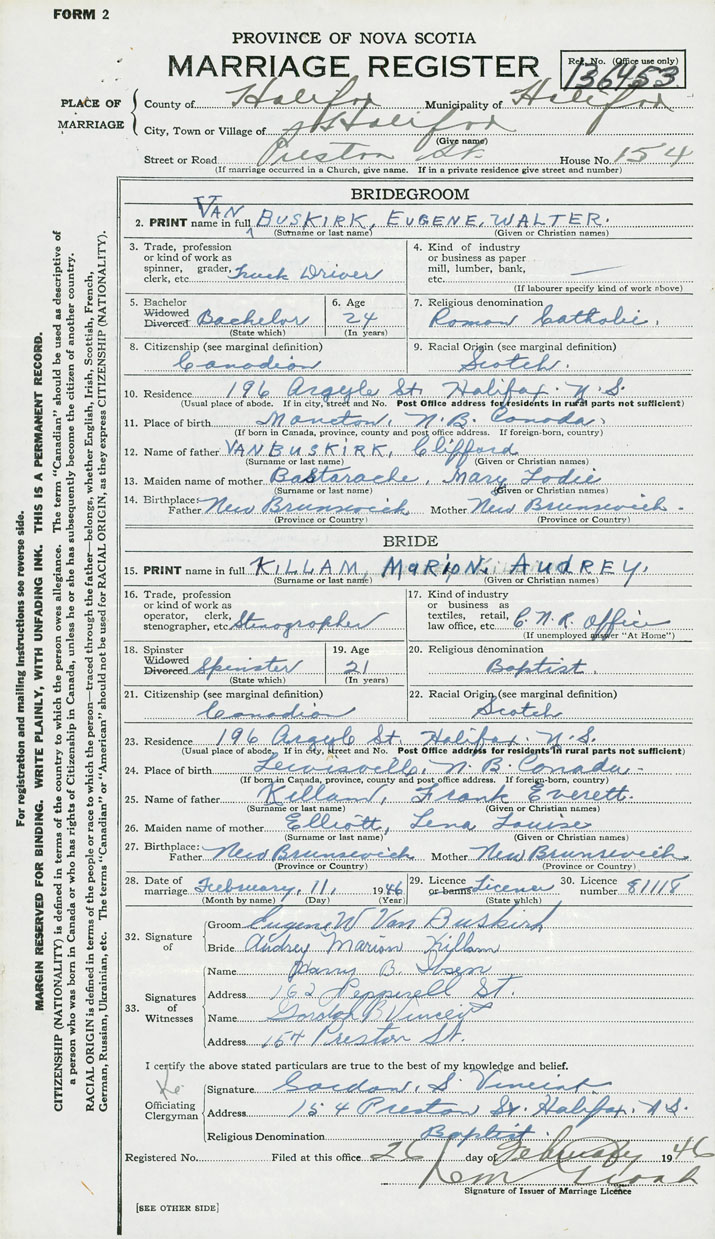 FORM 2
PROVINCE OF NOVA SCOTIA
MARRIAGE REGISTER
Reg. No. (Office use only)
136453
PLACE OF MARRIAGE
County of Halifax Municipality of Halifax
City, Town or Village of Halifax
(Give name)
Street or Road Preston St. House No. 154
(If marriage occurred in a Church, give name. If in a private residence give street and number)
BRIDEGROOM
2. PRINT name in full VAN BUSKIRK, EUGENE, WALTER.
(Surname or last name) (Given or Christian names)
3. Trade, profession or kind of work as spinner, grader, clerk, etc. Truck Driver
4. Kind of industry or business as paper mill, lumber, bank, etc. —
(If labourer specify kind of work above)
5. Bachelor Widowed Divorced Bachelor
(State which)
6. Age 24
(In years)
7. Religious denomination Roman Catholic.
8. Citizenship (see marginal definition) Canadian
9. Racial Origin (see marginal definition) Scotch.
10. Residence 196 Argyle St. Halifax. N.S.
(Usual place of abode. If in city, street and No. Post Office address for residents in rural parts not sufficient)
11. Place of birth Moncton, N.B. Canada.
(If born in Canada, province, county and post office address. If foreign-born, country)
12. Name of father VAN BUSKIRK, Clifford
(Surname or last name) (Given or Christian names)
13. Maiden name of mother Bastarache, Mary Lodie
(Surname or last name) (Given or Christian names)
14. Birthplace: Father New Brunswick Mother New Brunswick.
(Province or Country) (Province or Country)
BRIDE
15. PRINT name in full KILLAM, MARION, AUDREY,
(Surname or last name) (Given or Christian names)
16. Trade, profession or kind of work as operator, clerk, stenographer, etc. Stenographer
17. Kind of industry or business as textiles, retail, law office, etc. C.N.R. Office
(If unemployed answer "At Home")
18. Spinster Widowed Divorced Spinster
(State which)
19. Age 21
(In years)
20. Religious denomination Baptist.
21. Citizenship (see marginal definition) Canadian
22. Racial Origin (see marginal definition) Scotch
23. Residence 196 Argyle St. Halifax. N.S.
(Usual place of abode. If in city, street and No. Post Office address for residents in rural parts not sufficient)
24. Place of birth Lewisville, N.B. Canada.
(If born in Canada, province, county and post office address. If foreign-born, country)
25. Name of father Killam, Frank Everett.
(Surname or last name) (Given or Christian names)
26. Maiden name of mother Elliott, Lena Louise
(Surname or last name) (Given or Christian names)
27. Birthplace: Father New Brunswick Mother New Brunswick.
(Province or Country) (Province or Country)
28. Date of marriage February, 11, 1946
(Month by name) (Day) (Year)
29. Licence or banns License
(State which)
30. Licence number 81118
32. Signature of
Groom Eugene W Van Buskirk
Bride Audrey Marion Killam
33. Signatures of Witnesses
Name Harry B.
Address 162 Pepperell St.
Name Vincent
Address 154 Preston St.
I certify the above stated particulars are true to the best of my knowledge and belief.
Officiating Clergyman
Signature Gordon, S. Vincent
Address 154 Preston St. Halifax. N.S.
Religious Denomination Baptist
Registered No. Filed at this office 26 day of February 1946
Signature of Issuer of Marriage Licence
[SEE OTHER SIDE]
For registration and mailing instructions see reverse side.
MARGIN RESERVED FOR BINDING. WRITE PLAINLY, WITH UNFADING INK. THIS IS A PERMANENT RECORD.
CITIZENSHIP (NATIONALITY) is defined in terms of the country to which the person owes allegiance. The term "Canadian" should be used as descriptive of
a person who was born in Canada or who has rights of Citizenship in Canada, unless he or she has subsequently become the citizen of another country.
RACIAL ORIGIN is defined in terms of the people or race to which the person—traced through the father—belongs, whether English, Irish, Scottish, French,
German, Russian, Ukrainian, etc. The terms "Canadian" or "American" should not be used for RACIAL ORIGIN, as they express CITIZENSHIP (NATIONALITY).